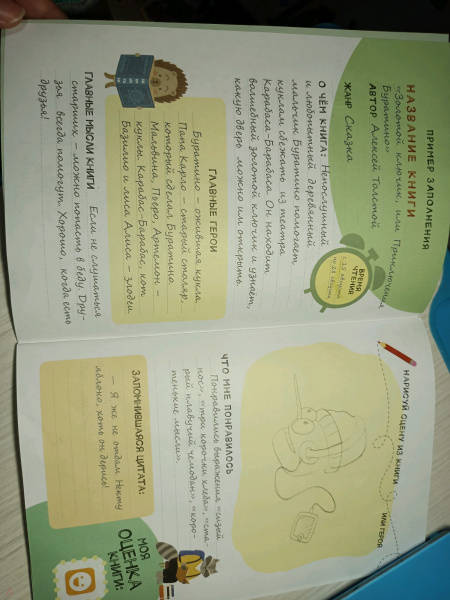 ПРИМЕР ЗАПОЛНЕНИЯ
НАЗВАНИЕ КНИГИ
«Золотой ключик, или Приключения
Буратино»
АВТОР Алексей Толстой
ЖАНР Сказка
ВРЕМЯ
ЧТЕНИЯ
О ЧЁМ КНИГА: Непослушный
и любопытный деревянный
мальчик Буратино помогает
куклам сбежать из театра
Карабаса-Барабаса. Он находит
волшебный золотой ключик и узнаёт,
какую дверь можно им открыть.
ГЛАВНЫЕ ГЕРОИ
Буратино – ожившая кукла.
Папа Карло – старый столяр,
который сделал Буратино.
Мальвина, Пьеро, Артемон –
куклы. Карабас-Барабас, кот
Базилио и лиса Алиса – злодеи.
ГЛАВНЫЕ МЫСЛИ КНИГИ Если не слушаться
старших – можно попасть в беду. Дру-
зья всегда помогут. Хорошо, когда есть
друзья!
НАРИСУЙ СЦЕНУ ИЗ КНИГИ
ИЛИ ГЕРОЯ
ЧТО МНЕ ПОНРАВИЛОСЬ
Понравились выражения «сизый
нос», «три корочки хлеба», «ста-
рый плавучий чемодан», «коро-
тенькие мысли».
ЗАПОМНИВШАЯСЯ ЦИТАТА:
– Я же не отдам Некту
яблоко, хоть он дерись!
МОЯ
ОЦЕНКА
КНИГИ: